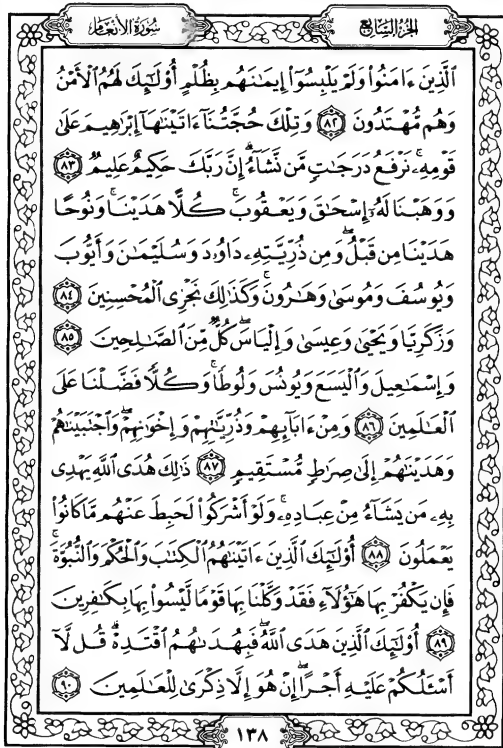 سُورَةُ الأَنْعَامِ
الجُزْءُ السَّابِعُ
الَّذِينَ ءَامَنُوا۟ وَلَمْ يَلْبِسُوٓا۟ إِيمَـٰنَهُم بِظُلْمٍ أُو۟لَـٰٓئِكَ لَهُمُ ٱلْأَمْنُ
وَهُم مُّهْتَدُونَ ٨٢ وَتِلْكَ حُجَّتُنَآ ءَاتَيْنَـٰهَآ إِبْرَٰهِيمَ عَلَىٰ
قَوْمِهِۦ ۚ نَرْفَعُ دَرَجَـٰتٍ مَّن نَّشَآءُ ۗ إِنَّ رَبَّكَ حَكِيمٌ عَلِيمٌ ٨٣
وَوَهَبْنَا لَهُۥٓ إِسْحَـٰقَ وَيَعْقُوبَ ۚ كُلًّا هَدَيْنَا ۚ وَنُوحًا
هَدَيْنَا مِن قَبْلُ ۖ وَمِن ذُرِّيَّتِهِۦ دَاوُۥدَ وَسُلَيْمَـٰنَ وَأَيُّوبَ
وَيُوسُفَ وَمُوسَىٰ وَهَـٰرُونَ ۚ وَكَذَٰلِكَ نَجْزِى ٱلْمُحْسِنِينَ ٨٤
وَزَكَرِيَّا وَيَحْيَىٰ وَعِيسَىٰ وَإِلْيَاسَ ۖ كُلٌّ مِّنَ ٱلصَّـٰلِحِينَ ٨٥
وَإِسْمَـٰعِيلَ وَٱلْيَسَعَ وَيُونُسَ وَلُوطًا ۚ وَكُلًّا فَضَّلْنَا عَلَى
ٱلْعَـٰلَمِينَ ٨٦ وَمِنْ ءَابَآئِهِمْ وَذُرِّيَّـٰتِهِمْ وَإِخْوَٰنِهِمْ ۖ وَٱجْتَبَيْنَـٰهُمْ
وَهَدَيْنَـٰهُمْ إِلَىٰ صِرَٰطٍ مُّسْتَقِيمٍ ٨٧ ذَٰلِكَ هُدَى ٱللَّهِ يَهْدِى
بِهِۦ مَن يَشَآءُ مِنْ عِبَادِهِۦ ۚ وَلَوْ أَشْرَكُوا۟ لَحَبِطَ عَنْهُم مَّا كَانُوا۟
يَعْمَلُونَ ٨٨ أُو۟لَـٰٓئِكَ ٱلَّذِينَ ءَاتَيْنَـٰهُمُ ٱلْكِتَـٰبَ وَٱلْحُكْمَ وَٱلنُّبُوَّةَ ۚ
فَإِن يَكْفُرْ بِهَا هَـٰٓؤُلَآءِ فَقَدْ وَكَّلْنَا بِهَا قَوْمًا لَّيْسُوا۟ بِهَا بِكَـٰفِرِينَ
٨٩ أُو۟لَـٰٓئِكَ ٱلَّذِينَ هَدَى ٱللَّهُ ۖ فَبِهُدَىٰهُمُ ٱقْتَدِهْ ۗ قُل لَّآ
أَسْـَٔلُكُمْ عَلَيْهِ أَجْرًا ۖ إِنْ هُوَ إِلَّا ذِكْرَىٰ لِلْعَـٰلَمِينَ ٩٠
١٣٨